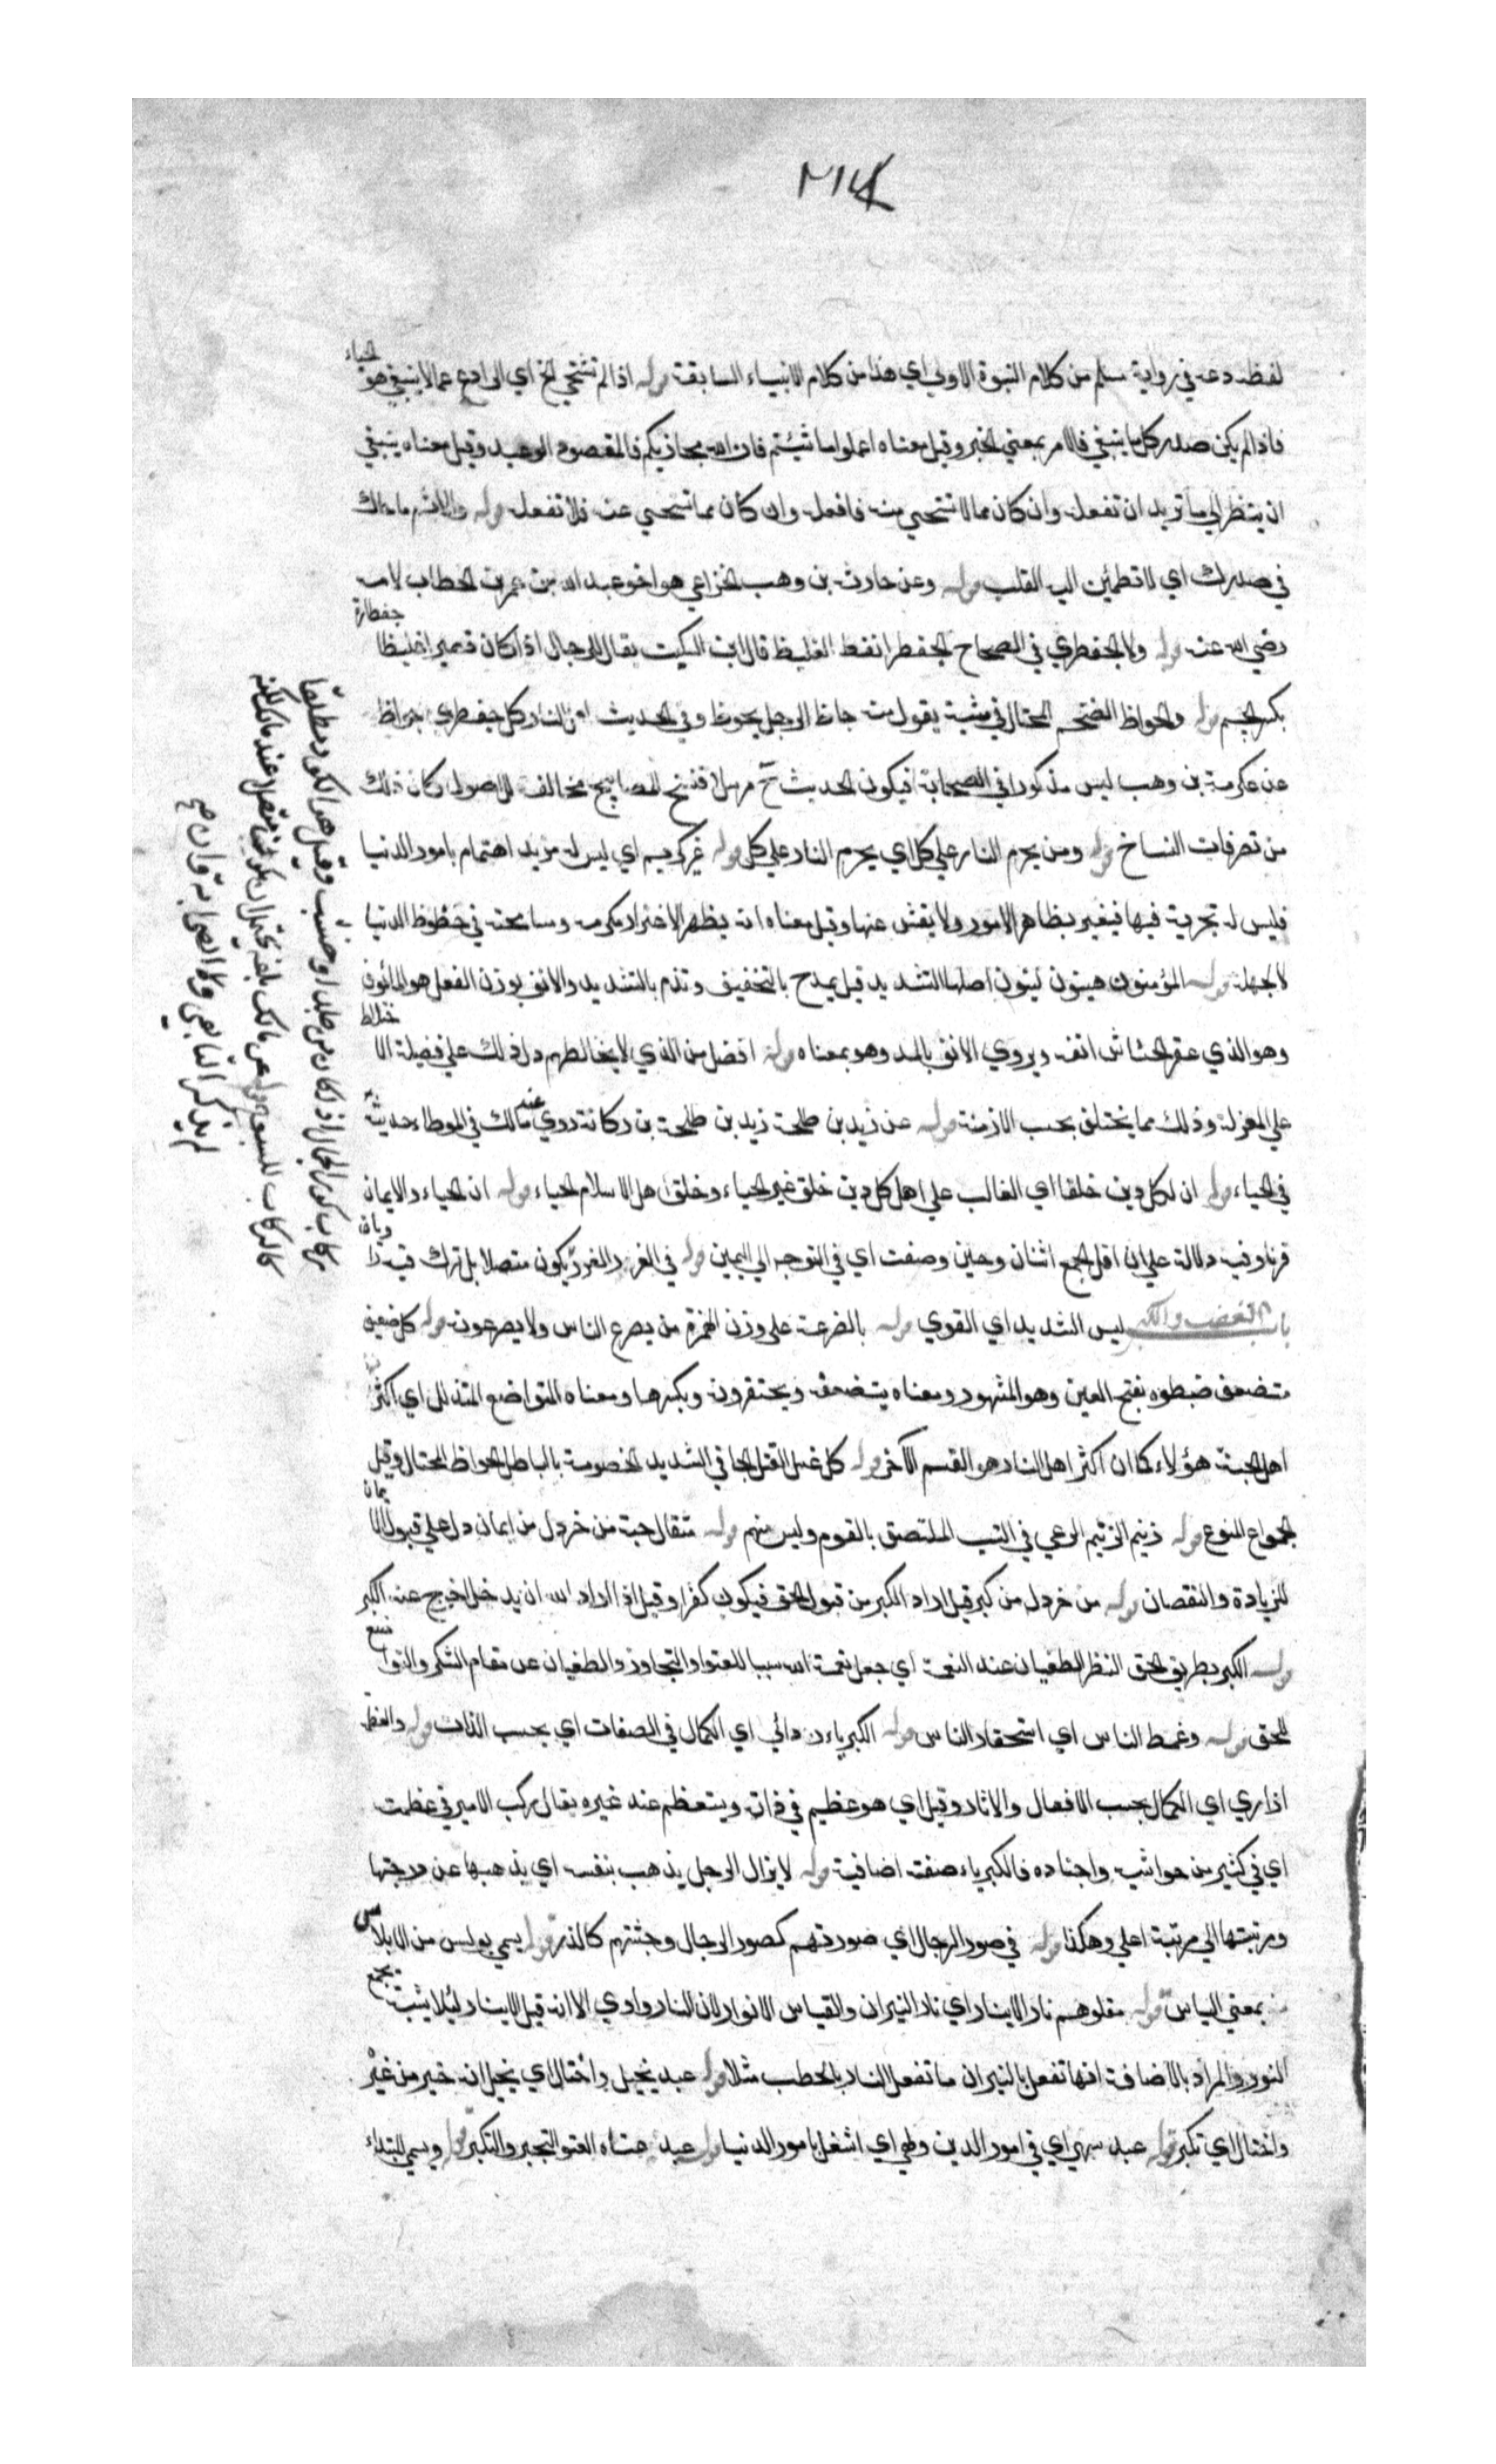 ٢١٤
لفظ دعه في رواية مسلم من كلام النبوة الاولى اي هذا من كلام الانبياء السابقة قوله اذا لم تستحي الخ اي الرادع عما لا ينبغي هو الحياء
فاذا لم يكن صدر كل ما ينبغي فالامر بمعنى الخبر وقيل معناه اعملوا ما شئتم فان الله مجازيكم فالمقصود الوعيد وقيل معناه ينبغي
ان ينظر الى ما تريد ان تفعل وان كان مما لا تستحيي منه فافعل وان كان مما تستحيي عنه فلا تفعل قوله والاثم ما حاك
في صدرك اي لا تطمئن اليه القلب قوله وعن حارثة بن وهب الخزاعي هو اخو عبد الله بن عمر بن الخطاب لامه
رضي الله عنه قوله ولا الجعظري في الصحاح الجعظر الفظ الغليظ قال ابن السكيت يقال للرجل اذا كان قصيرا غليظا جعظارة
بكسر الجيم قوله والجواظ الضخم المختال في مشيته يقول منه جاظ الرجل يجوظ وفي الحديث اهل النار كل جعظري جواظ
عن عكرمة بن وهب ليس مذكورا في الصحابة فيكون الحديث ح مرسلا فنسخ المصابيح مخالف للاصول وكان ذلك
من تصرفات النساخ قوله ومن يحرم النار على كل اي يحرم النار على كل قوله غر كريم اي ليس له مزيد اهتمام بامور الدنيا
فليس له تجربة فيها فيغير بظاهر الامور ولا يفتش عنها وقيل معناه انه يظهر الاغترار بكرمه ومسامحته في حظوظ الدنيا
لا لجهله قوله المؤمنون هينون لينون اصلها التشديد قيل يمدح بالتخفيف وتذم بالتشديد والانف بوزن الفعل هو المأنوف
وهو الذي عقر الخشاش انفه ويروى الانف بالمد وهو بمعناه قوله افضل من الذي لا يخالطهم دل ذلك على فضيلة الاختلاط
على العزلة وذلك مما يختلف بحسب الازمنة قوله عن زيد بن طلحة زيد بن طلحة بن ركانة روي عنه مالك في الموطاء حديثه
في الحياء قوله ان لكل دين خلقا اي الغالب على اهل كل دين خلق غير الحياء وخلق اهل الاسلام الحياء قوله ان الحياء والايمان
قرنا وفيه دلالة على ان اقل الجمع اثنان وحين وضعت اي في التوجه الى اليمين قوله في الغرز الغرز يكون متصلا بل ترك
باب الغضب والكبر ليس الشديد اي القوي قوله بالصرعة على وزن الهمزة من يصرع الناس ولا يصرعونه قوله كل ضعيف
متضعف ضبطوه بفتح العين وهو المشهور ومعناه يستضعفه ويحتقرونه وبكسرها ومعناه المتواضع المتذلل اي اكثر
اهل الجنة هؤلاء كما ان اكثر اهل النار هو القسم الآخر قوله كل عتل العتل الجافي الشديد الخصومة بالباطل الجواظ المختال وقيل
الجموع المنوع قوله زنيم الزنيم الدعي في النسب الملتصق بالقوم وليس منهم قوله مثقال حبة من خردل من ايمان دل على قبول الايمان
للزيادة والنقصان قوله من خردل من كبر قيل اراد الكبر من قبول الحق فيكون كفرا وقيل اذا اراد الله ان يدخل اخرج عنه الكبر
قوله الكبر بطر الحق البطر الطغيان عند النعمة اي جعل نعمة الله سببا للعتو والتجاوز والطغيان عن مقام الشكر والتواضع
للحق قوله وغمط الناس اي استحقار الناس قوله الكبرياء ردائي اي الكمال في الصفات اي بحسب الذات قوله والعظمة
ازاري اي الكمال بحسب الافعال والاثار وقيل اي هو عظيم في ذاته ويتعظم عند غيره يقال ركب الامير في عظمته
اي في كثير من حواشيه واجناده فالكبرياء صفته اضافية قوله لا يزال الرجل يذهب بنفسه اي يذهبها عن درجتها
ومرتبتها الى مرتبة اعلى وهكذا قوله في صور الرجال اي صورتهم كصور الرجال وجثتهم كالذر قوله يسمى بولس من الابلاس
بمعنى الياس قوله تعلوهم نار الانيار اي نار النيران والقياس الانوار لان النار واوي الا انه قيل الانيار لئلا يشتبه بجمع
النور والمراد بالاضافة انها تفعل بالنيران ما تفعل النار بالحطب مثلا قوله عبد تخيل واختال اي تخيل انه خير من غيره
واختال اي تكبر قوله عبد سهى اي في امور الدين ولهى اي اشتغل بامور الدنيا قوله عبد عتا العتو التجبر والتكبر قوله ونسي المبتداء
ركاب كور الجمل اذا كان من جلد او خشب وقيل هو الكور مطلقا
كالركاب للسرج قوله عن مالك بلغه
لم يذكر التابعي ولا الصحابة وان صح